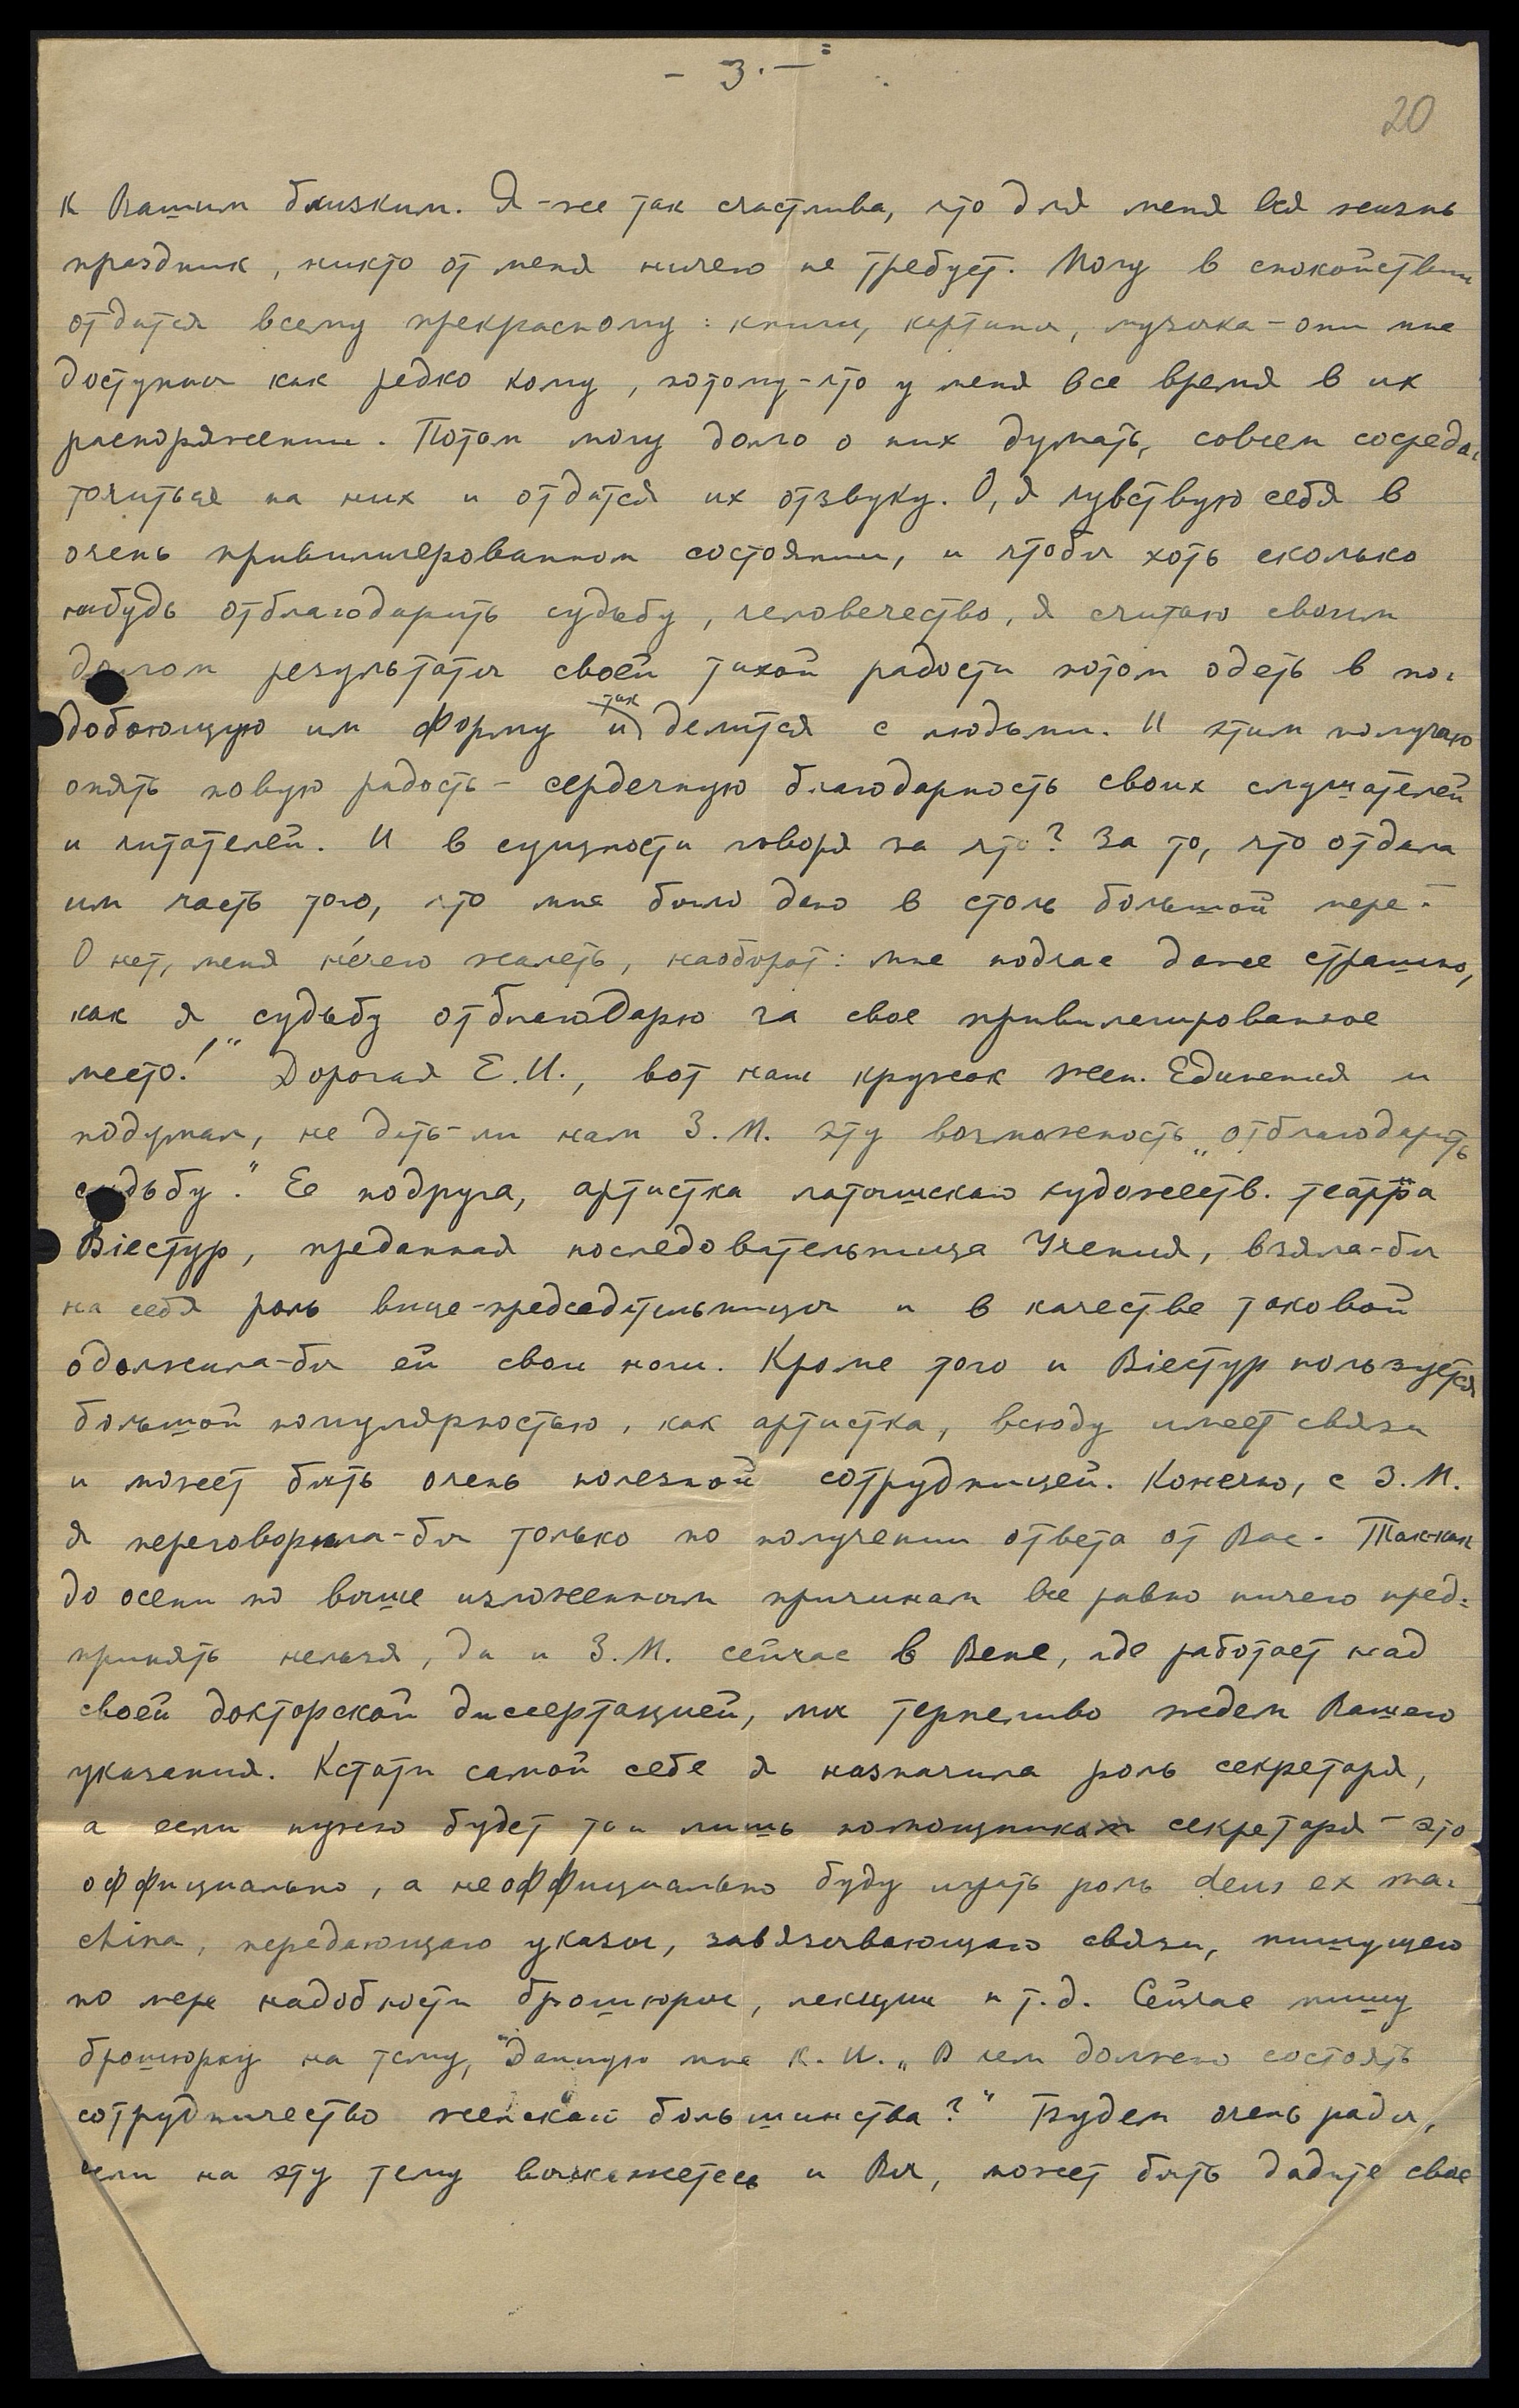 - 3. -
20
к Вашим близким. Я-же так счастлива, что для меня вся жизнь
праздник, никто от меня ничего не требует. Могу в спокойствии
отдатся всему прекрасному: книги, картины, музыка - они мне
доступны как редко кому, потому-что у меня все время в их
распоряжении. Потом могу долго о них думать, совсем сосредо-
точиться на них и отдатся их отзвуку. О, я чувствую себя в
очень привилигерованном состоянии, и чтобы хоть сколько
нибудь отблагодарить судьбу, человечество, я считаю своим
долгом результаты своей тихой радости потом одеть в по-
добающую им форму и так делится с людьми. И этим получаю
опять новую радость - сердечную благодарность своих слушателей
и читателей. И в сущности говоря за что? За то, что отдала
им часть того, что мне было дано в столь большой мере.
О нет, меня не́чего жалеть, наоборот: мне подчас даже страшно,
как я судьбу отблагодарю за свое привилегированное
место!" Дорогая Е.И., вот наш кружок Жен. Единения и
подумал, не дать-ли нам З.М. эту возможность „отблагодарить
судьбу." Ее подруга, артистка латышскаго художеств. театра
Вiестур, преданная последовательница Учения, взяла-бы
на себя роль вице-председательницы и в качестве таковой
одолжила-бы ей свои ноги. Кроме того и Вiестур пользуется
большой популярностью, как артистка, всюду имеет связи
и может быть очень полезной сотрудницей. Конечно, с З.М.
я переговорила-бы только по получении ответа от Вас. Так-как
до осени по выше изложенным причинам все равно ничего пред-
принять нельзя, да и З.М. сейчас в Вене, где работает над
своей докторской диссертацией, мы терпеливо ждем Вашего
указания. Кстати самой себе я назначила роль секретаря,
а если нужно будет то и лишь помощника секретаря - это
оффициально, а неоффициально буду играть роль deus ex ma-
china, передающаго указы, завязывающаго связи, пишущего
по мере надобности брошюры, лекции и т.д. Сейчас пишу
брошюрку на тему, данную мне К.И. „В чем должно состоять
сотрудничество женскаго большинства?" Будем очень рады,
если на эту тему выскажетесь и Вы, может быть дадите свое